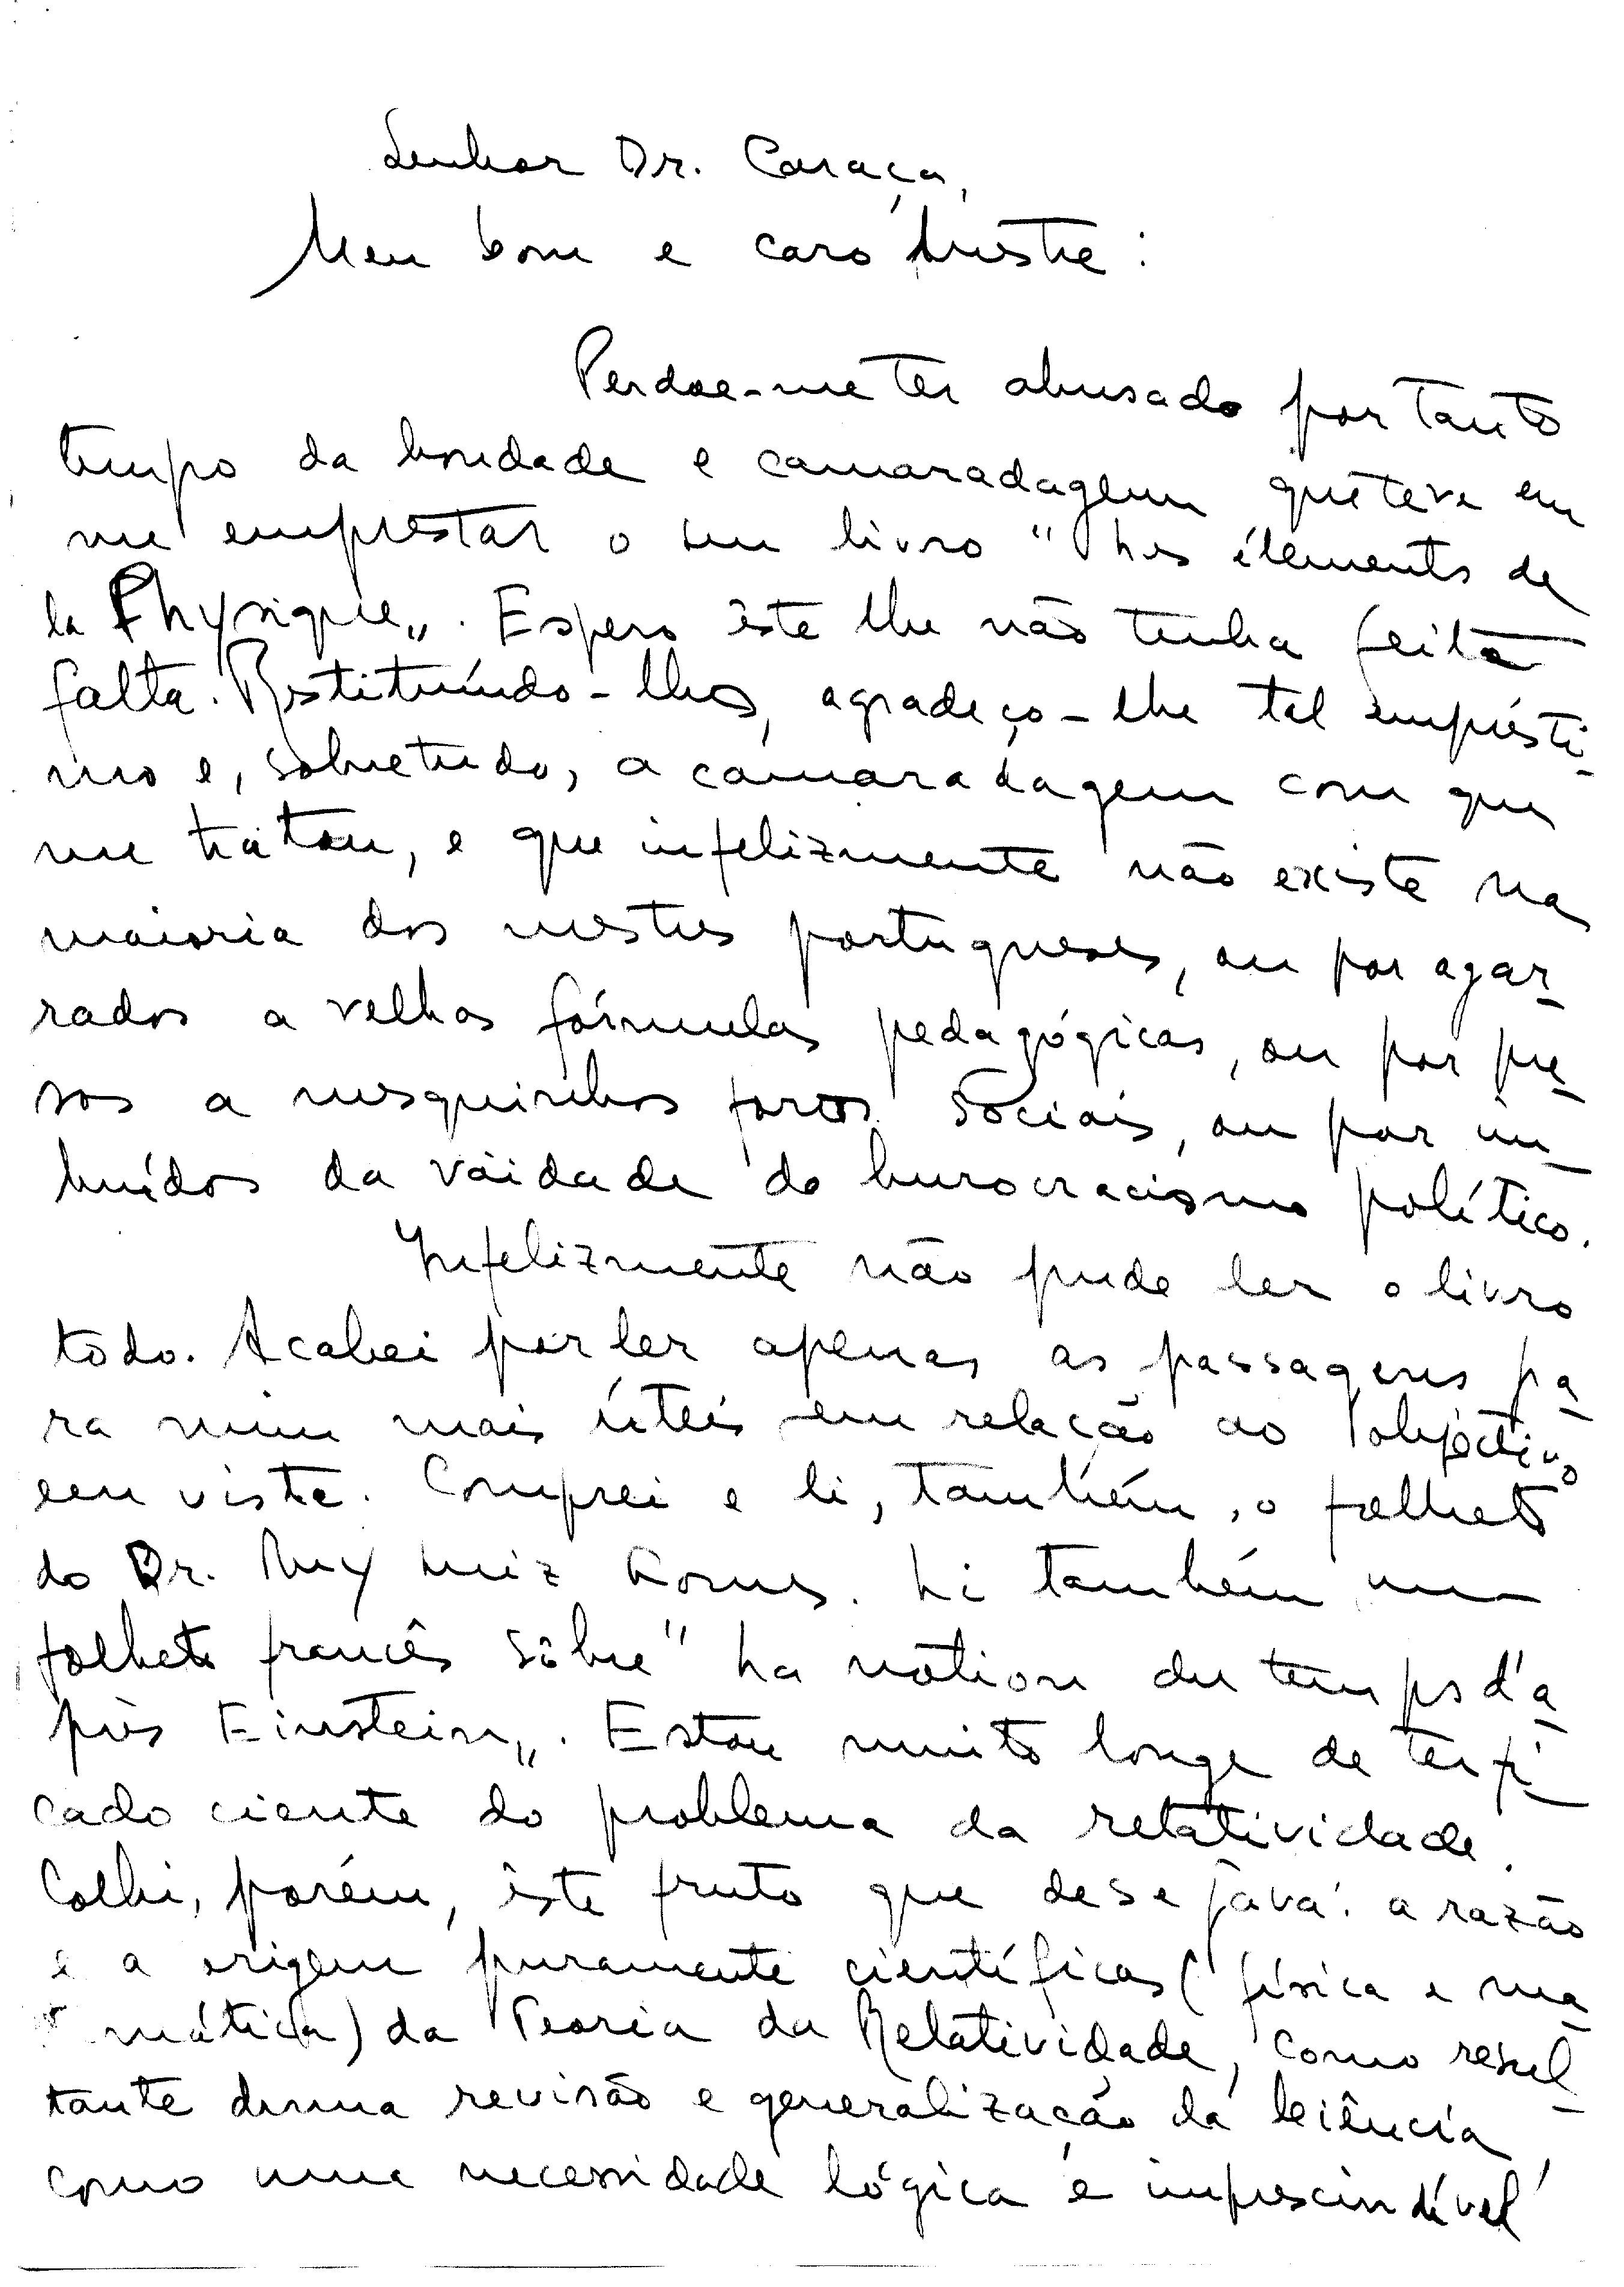 Senhor Dr. Caraça,
Meu bom e caro Mestre:
Perdoe-me ter abusado por tanto
tempo da bondade e camaradagem que teve em
me emprestar o seu livro "Les élements de
la Physique„. Espero êste lhe não tenha feito
falta. Restituíndo-lho, agradeço-lhe tal emprésti-
mo e, sobretudo, a camaradagem com que
me tratou, e que infelizmente não existe na
maioria dos mestres portugueses, ou por agar-
rados a velhas fórmulas pedagógicas, ou por pre-
sos a mesquinhos foros sociais, ou por im-
buídos da vaidade do burocracismo político.
Infelizmente não pude ler o livro
todo. Acabei por ler apenas as passagens pa-
ra mim mais úteis em relação ao objectivo
em vista. Comprei e li, também, o folheto
do Dr. Ruy Luiz Gomes. Li também um
folheto francês sôbre "La notion du temps d'a-
près Einstein„. Estou muito longe de ter fi-
cado ciente do problema da relatividade.
Colhi, porém, êste fruto que desejava: a razão
e a origem puramente científicas (física e ma-
mática) da Teoria da Relatividade, como resul-
tante duma revisão e generalização da Ciência
como uma necessidade lógica e imprescindível